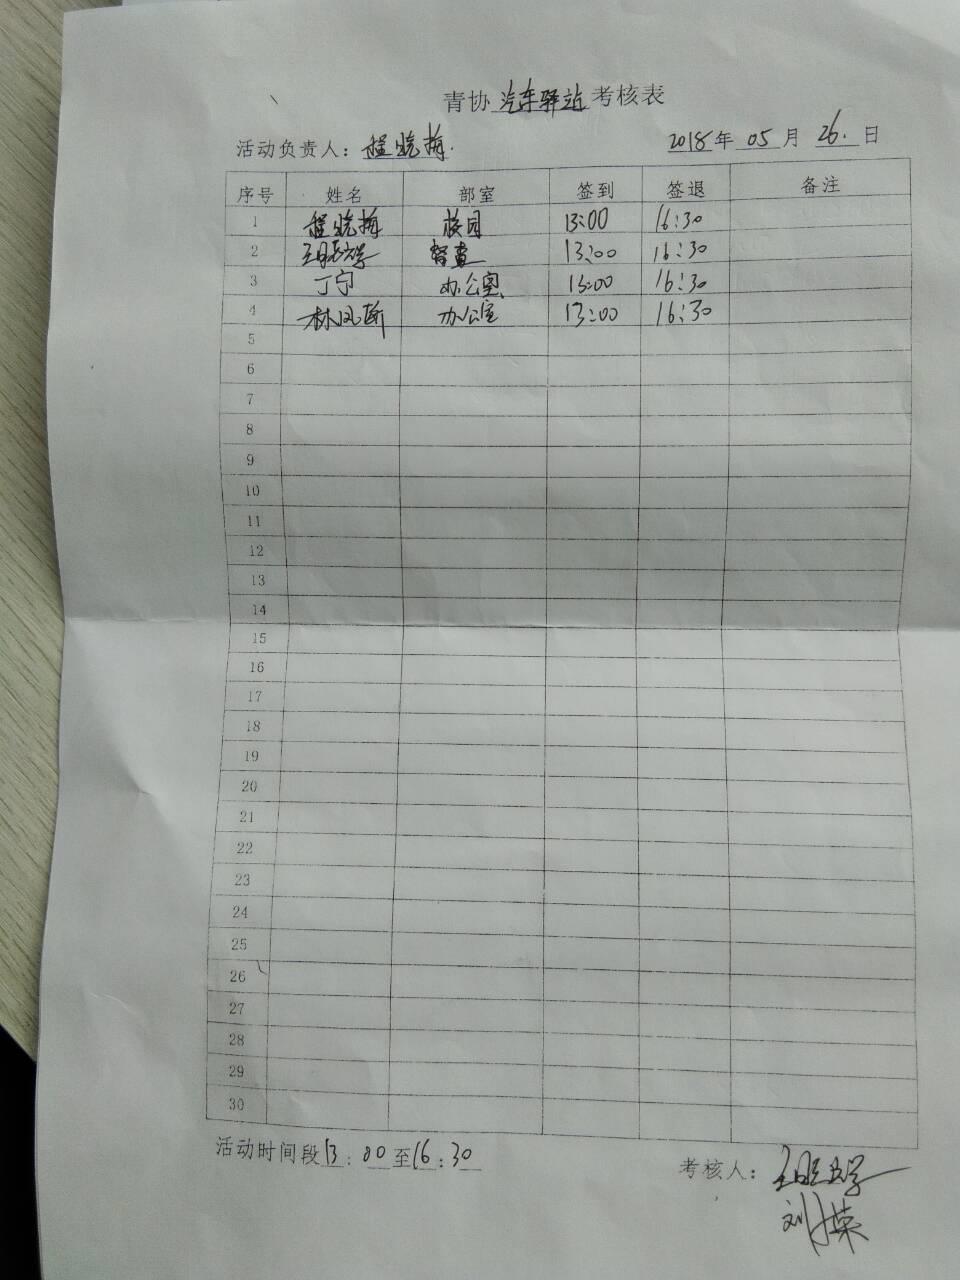 青协 汽车驿站 考核表
活动负责人：程晓梅.
2018年 05 月 26. 日
序号 姓名 部室 签到 签退 备注
1 程晓梅 校园 13:00 16:30
2 督查 13:00 16:30
3 丁宁 办公室 13:00 16:30
4 办公室 13:00 16:30
5
6
7
8
9
10
11
12
13
14
15
16
17
18
19
20
21
22
23
24
25
26
27
28
29
30
活动时间段13:00至16:30
考核人：